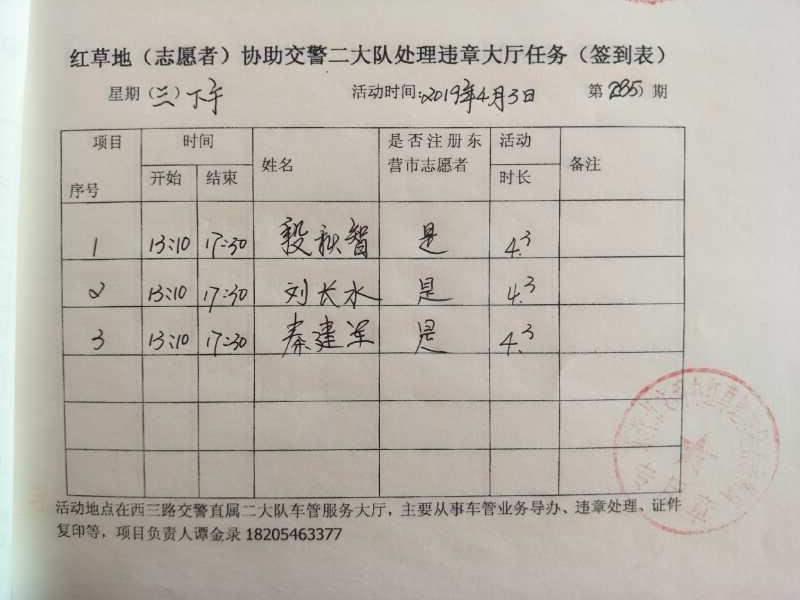 红草地（志愿者）协助交警二大队处理违章大厅任务（签到表）
星期（三）下午 活动时间：2019年4月3日 第（285）期
项目 时间 姓名 是否注册东营市志愿者 活动时长 备注
序号 开始 结束
1 13:10 17:30 段秋智 是 4.3
2 13:10 17:30 刘长水 是 4.3
3 13:10 17:30 秦建军 是 4.3
活动地点在西三路交警直属二大队车管服务大厅，主要从事车管业务导办、违章处理、证件
复印等，项目负责人谭金录 18205463377